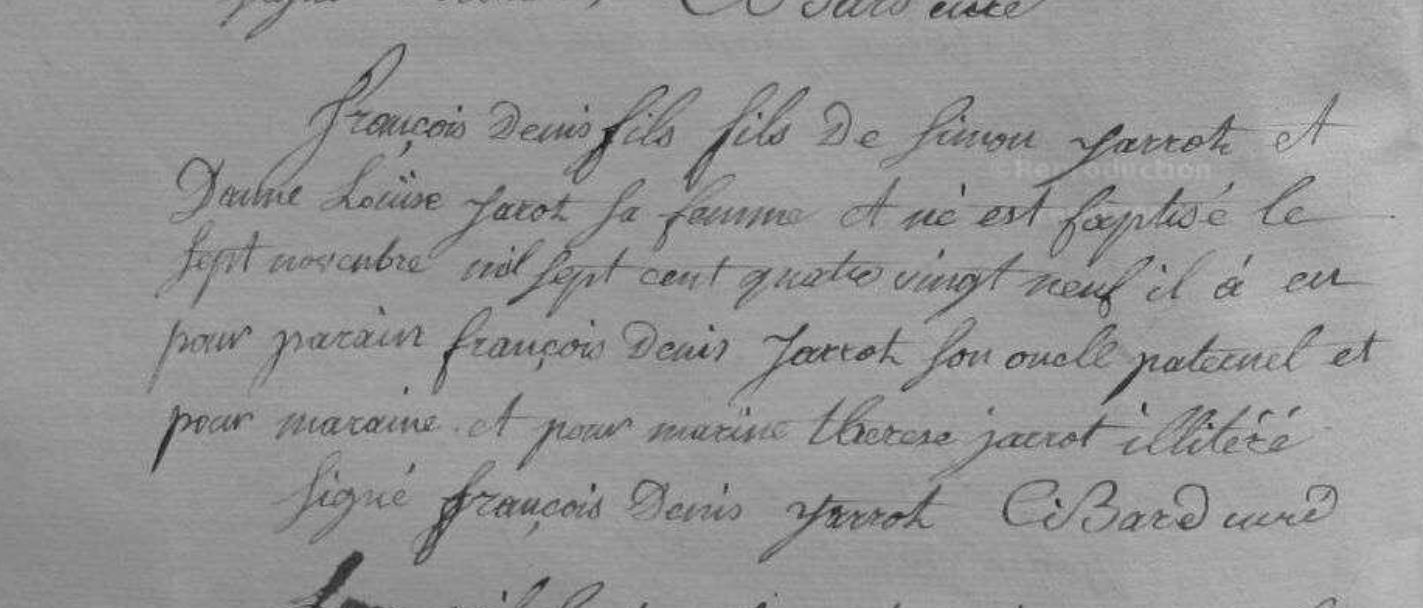 curé
françois Denis fils fils De Simon Jarrot et
Danne Loüise Jarot sa femme et né est baptisé le
sept novembre mil sept cent quatre vingt neuf il à eu
pour parain françois Denis Jarrot son oncle paternel et
pour maraine et pour marine therese jarrot illitéré
signé françois Denis Jarrot CBard curé